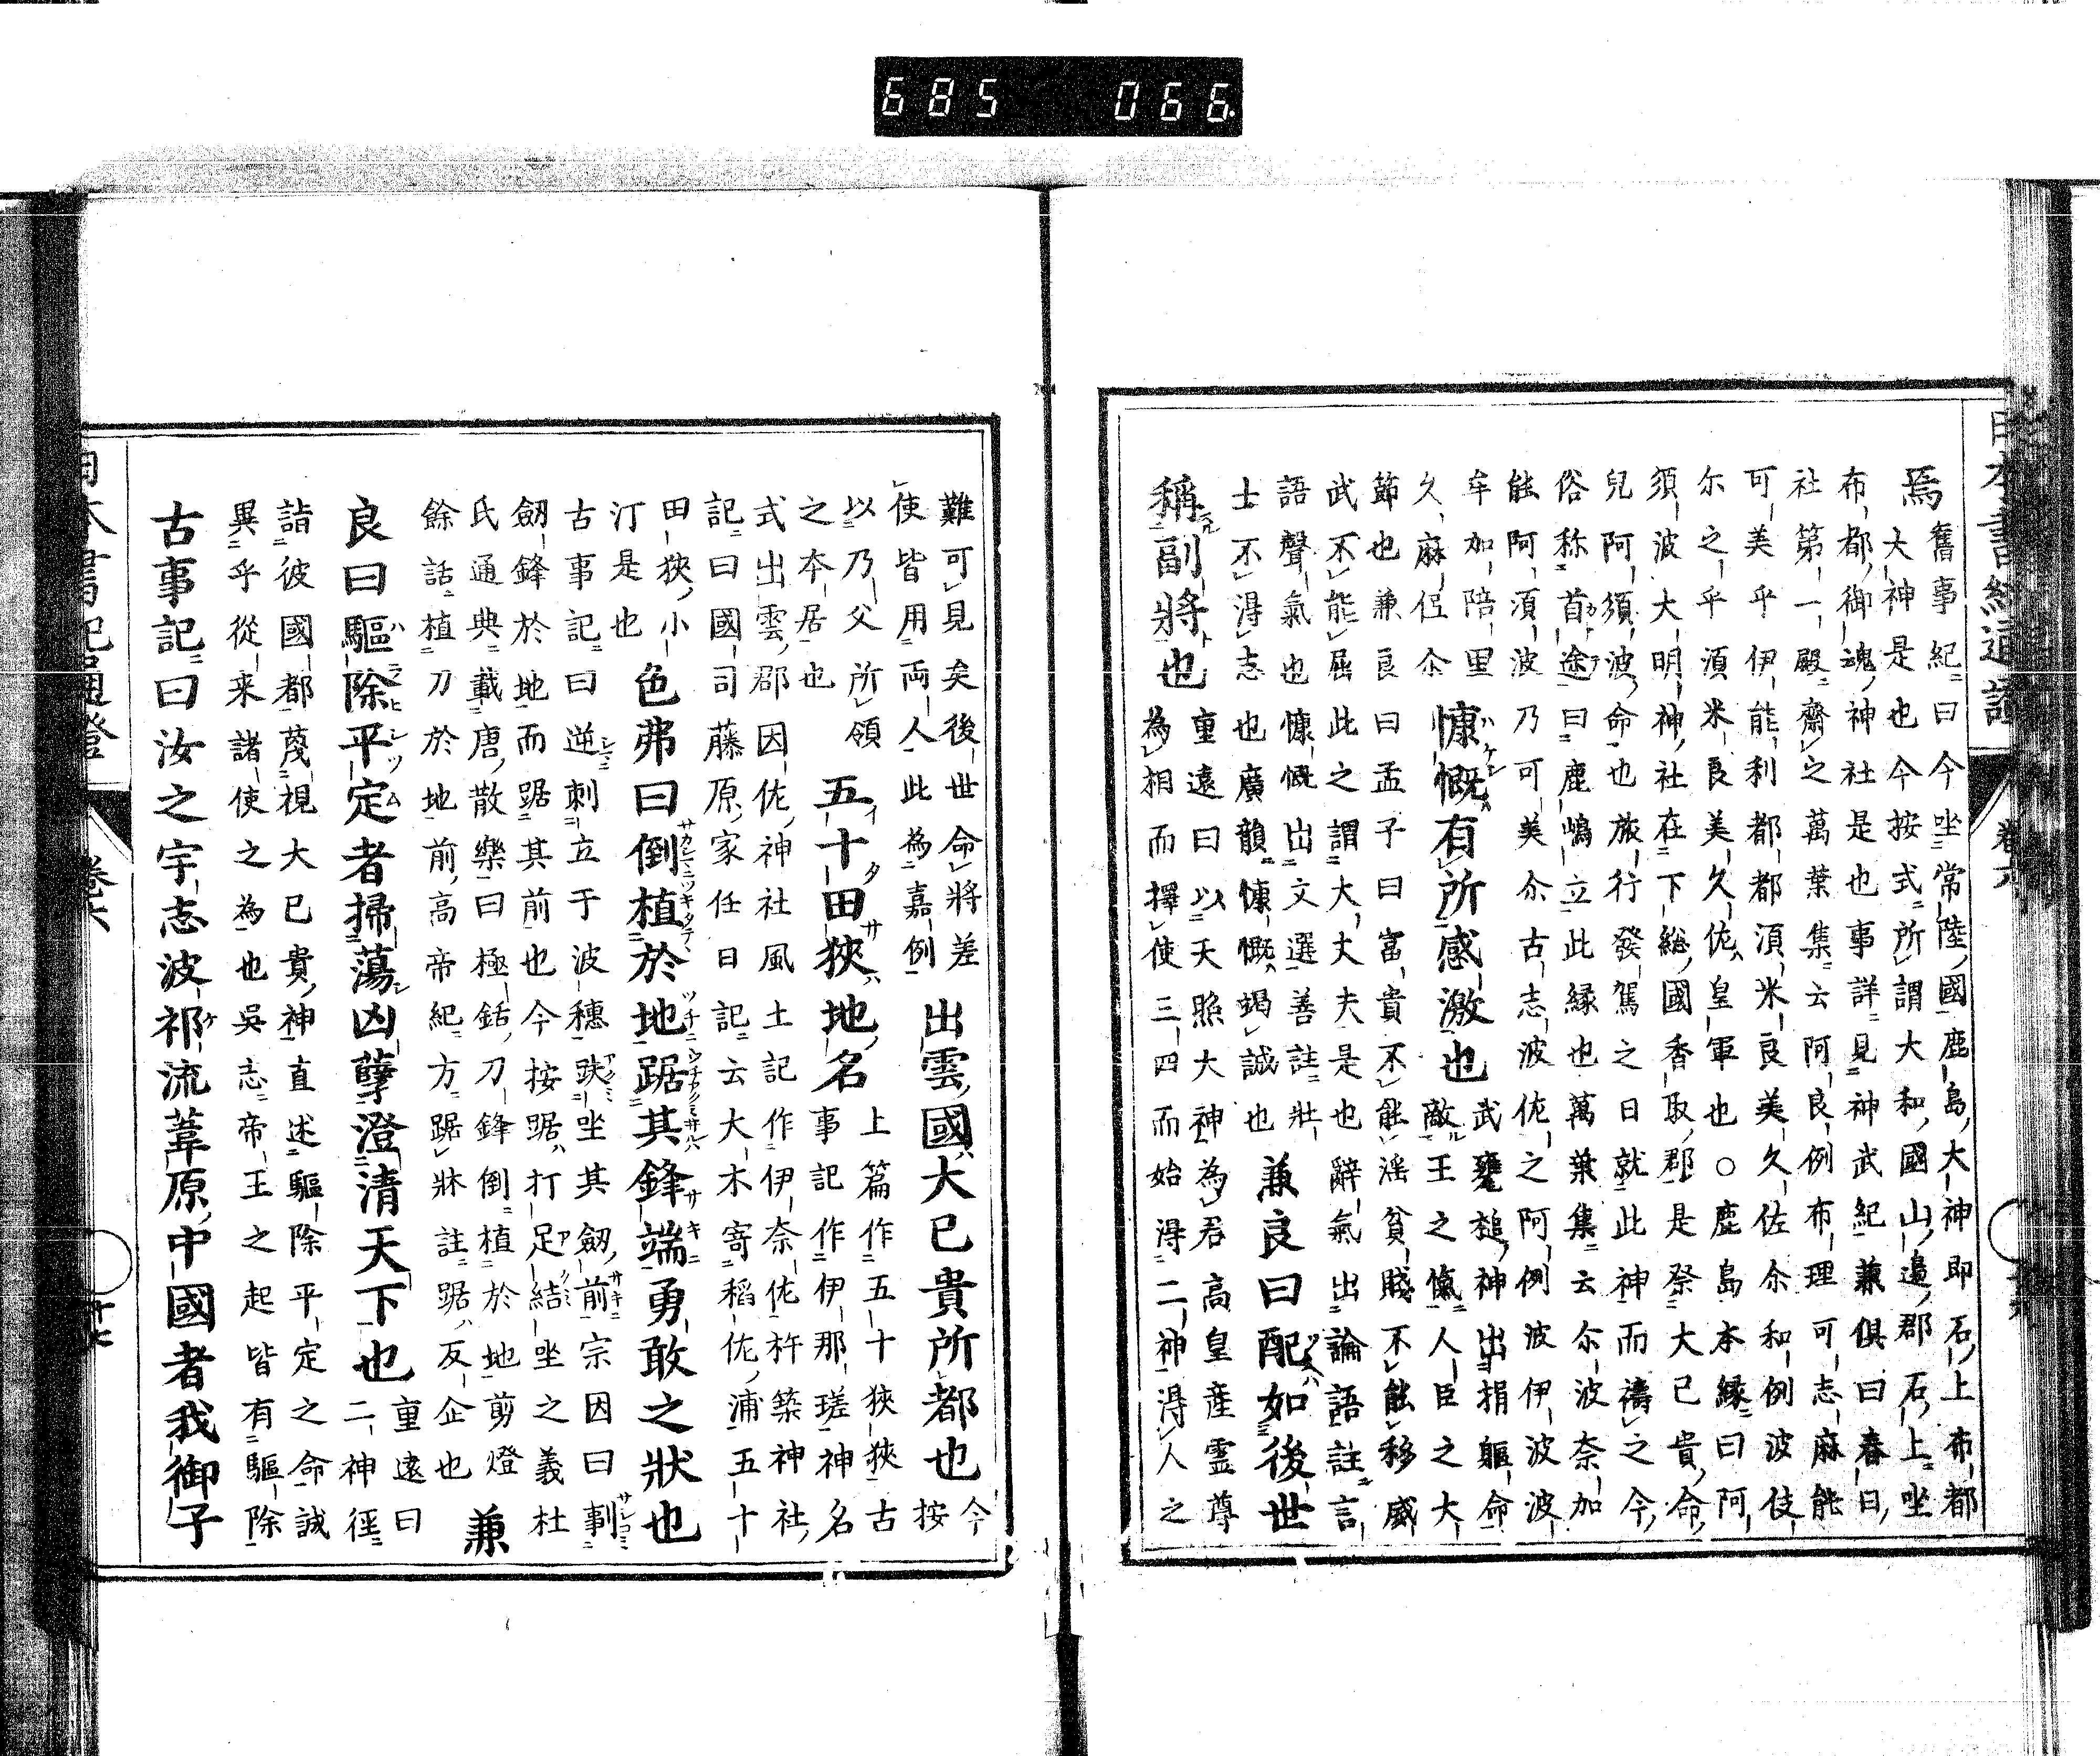 685 066
日本書紀通證 卷六
焉舊事紀曰今坐常陸國鹿島大神即石上布都
大神是也今按式所謂大和國山邊郡石上坐
布都御魂神社是也事詳見神武紀兼俱曰春日
社第一殿齋之萬葉集云阿良例布理可志麻能
可美乎伊能利都都須米良美久佐尒和例波伎
尓之乎須米良美久佐皇軍也○鹿島本縁曰阿
須波大明神社在下総國香取郡是祭大己貴命
兒阿須波命也旅行發駕之日就此神而禱之今
俗称首途曰鹿嶋立此縁也萬葉集云尓波奈加
能阿須波乃可美尒古志波佐之阿例波伊波波
牟加陪里
久麻侄尒
慷慨有所感激也
武甕槌神出捐軀命
敵王之愾人臣之大
節也兼良曰孟子曰富貴不能淫貧賤不能移威
武不能屈此之謂大丈夫是也辭氣出論語註言
語聲氣也慷慨出文選善註壯
士不得志也廣韻慷慨竭誠也
兼良曰配如後世
稱副將也
重遠曰以天照大神為君高皇産霊尊
為相而擇使三四而始得二神得人之
難可見矣後世命將差
使皆用兩人此為嘉例
出雲國大己貴所都也
今
按
以乃父所領
之本居也
五十田狹地名
上篇作五十狹狹古
事記作伊那瑳神名
式出雲郡因佐神社風土記作伊奈佐杵築神社
記曰國司藤原家任日記云大木寄稻佐浦五十
田狹小
汀是也
色弗曰倒植於地踞其鋒端勇敢之狀也
古事記曰逆刺立于波穗趺坐其劒前宗因曰剚
劒鋒於地而踞其前也今按踞打足結坐之義杜
氏通典載唐散樂曰極銛刀鋒倒植於地剪燈
餘話植刀於地前高帝紀方踞牀註踞反企也
兼
良曰驅除平定者掃蕩凶孽澄清天下也
重遠曰
二神徑
詣彼國都蔑視大己貴神直述驅除平定之命誠
異乎從来諸使之為也吳志帝王之起皆有驅除
古事記曰汝之宇志波祁流葦原中國者我御子
日本書紀通證 卷六 十七